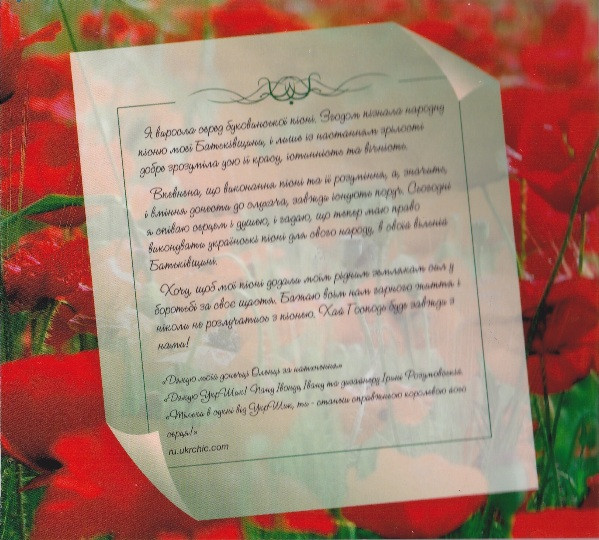 Я виросла серед буковинської пісні. Згодом пізнала народну
пісню моєї Батьківщини, і лише із настанням зрілості
добре зрозуміла усю її красу, істинність та вічність.
Впевнена, що виконання пісні та її розуміння, а, значить,
і вміння донести до слухача, завжди існують поруч. Сьогодні
я співаю серцем і душею, і гадаю, що тепер маю право
виконувати українські пісні для свого народу, в своїй вільній
Батьківщині.
Хочу, щоб мої пісні додали моїм рідним землякам сил у
боротьбі за своє щастя. Бажаю всім нам гарного життя і
ніколи не розлучатись з піснею. Хай Господь буде завжди з
нами!
«Дякую моїй донечці Оленці за натхнення»
«Дякую УкрШик! Пану Івану та дизайнеру Ірині Розумовській.
«Тільки в сукні від УкрШик, ти - станеш справжньою королевою його
серця!»
ru.ukrchic.com